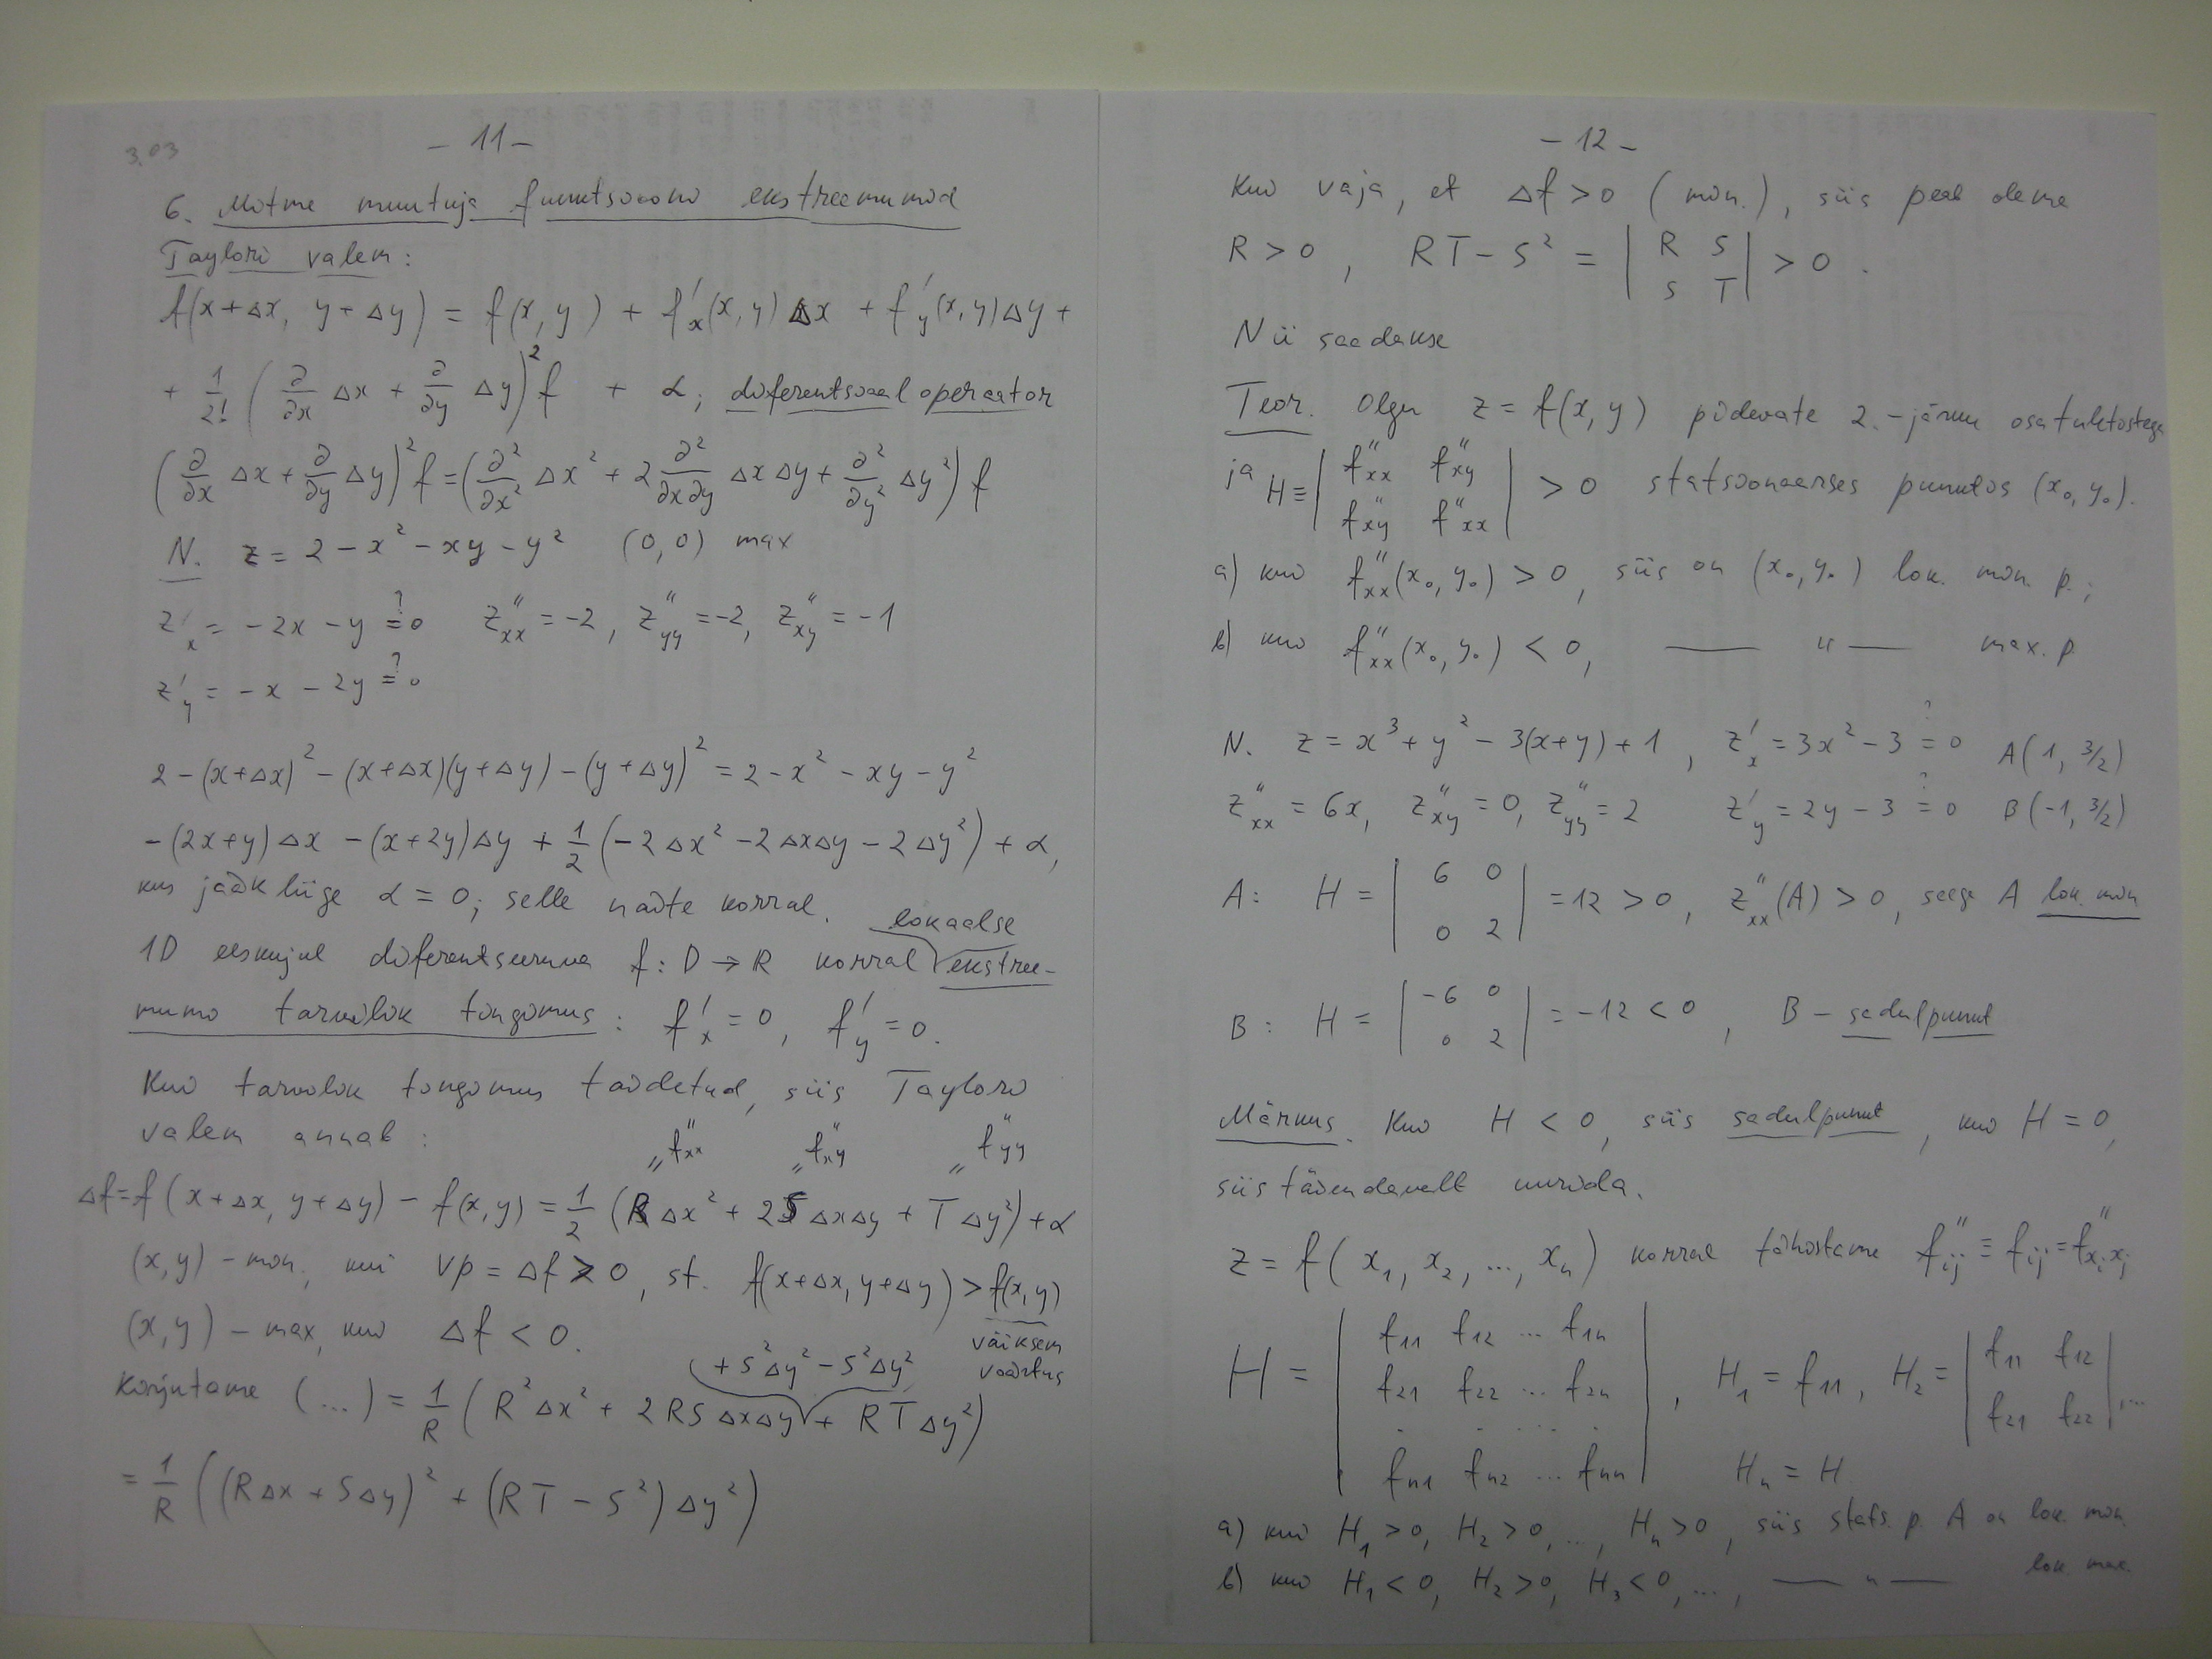 3.03
- 11 -
6. Mitme muutuja funktsiooni ekstreemumid
Taylori valem:
f(x+Δx, y+Δy) = f(x,y) + f'x(x,y)Δx + f'y(x,y)Δy +
+ 1/2! (∂/∂x Δx + ∂/∂y Δy)² f + α; diferentsiaaloperaator
(∂/∂x Δx + ∂/∂y Δy)² f = (∂²/∂x² Δx² + 2 ∂²/∂x∂y ΔxΔy + ∂²/∂y² Δy²) f
N. z = 2 - x² - xy - y² (0,0) max
z'x = -2x - y =? 0 z''xx = -2, z''yy = -2, z''xy = -1
z'y = -x - 2y =? 0
2 - (x+Δx)² - (x+Δx)(y+Δy) - (y+Δy)² = 2 - x² - xy - y²
-(2x+y)Δx - (x+2y)Δy + 1/2 (-2Δx² - 2ΔxΔy - 2Δy²) + α,
kus jääkliige α = 0; selle näite korral.
lokaalse
1D eeskujul diferentseeruva f: D → R korral ekstree-
mumi tarvilik tingimus: f'x = 0, f'y = 0.
Kui tarvilik tingimus täidetud, siis Taylori
valem annab:
" f''xx " f''xy " f''yy
Δf = f(x+Δx, y+Δy) - f(x,y) = 1/2 (RΔx² + 2SΔxΔy + TΔy²) + α
(x,y) - min, kui VP = Δf > 0, st. f(x+Δx, y+Δy) > f(x,y)
väiksem
väärtus
(x,y) - max, kui Δf < 0.
+ S²Δy² - S²Δy²
Kirjutame (...) = 1/R (R²Δx² + 2RSΔxΔy + RTΔy²)
= 1/R ((RΔx + SΔy)² + (RT - S²)Δy²)
- 12 -
Kui vaja, et Δf > 0 (min.), siis peab olema
R > 0, RT - S² = | R S |
| S T | > 0.
Nii saadakse
Teor. Olgu z = f(x,y) pidevate 2.-järku osatuletistega
ja H = | f''xx f''xy |
| f''xy f''xx | > 0 statsionaarses punktis (x₀, y₀).
a) kui f''xx(x₀, y₀) > 0, siis on (x₀, y₀) lok. min. p.;
b) kui f''xx(x₀, y₀) < 0, —— " —— max. p.
N. z = x³ + y² - 3(x+y) + 1, z'x = 3x² - 3 =? 0 A(1, 3/2)
z''xx = 6x, z''xy = 0, z''yy = 2 z'y = 2y - 3 =? 0 B(-1, 3/2)
A: H = | 6 0 |
| 0 2 | = 12 > 0, z''xx(A) > 0, seega A lok. min
B: H = | -6 0 |
| 0 2 | = -12 < 0, B - sadulpunkt
Märkus. Kui H < 0, siis sadulpunkt, kui H = 0,
siis täiendavalt uurida.
z = f(x₁, x₂, ..., xₙ) korral tähistame f''ij ≡ fij = f''xixj
H = | f11 f12 ... f1n |
| f21 f22 ... f2n |
| . . ... . |
| fn1 fn2 ... fnn |, H₁ = f11, H₂ = | f11 f12 |
| f21 f22 |, ...
Hₙ = H
a) kui H₁ > 0, H₂ > 0, ..., Hₙ > 0, siis stats. p. A on lok. min.
b) kui H₁ < 0, H₂ > 0, H₃ < 0, ..., —— " —— lok. max.